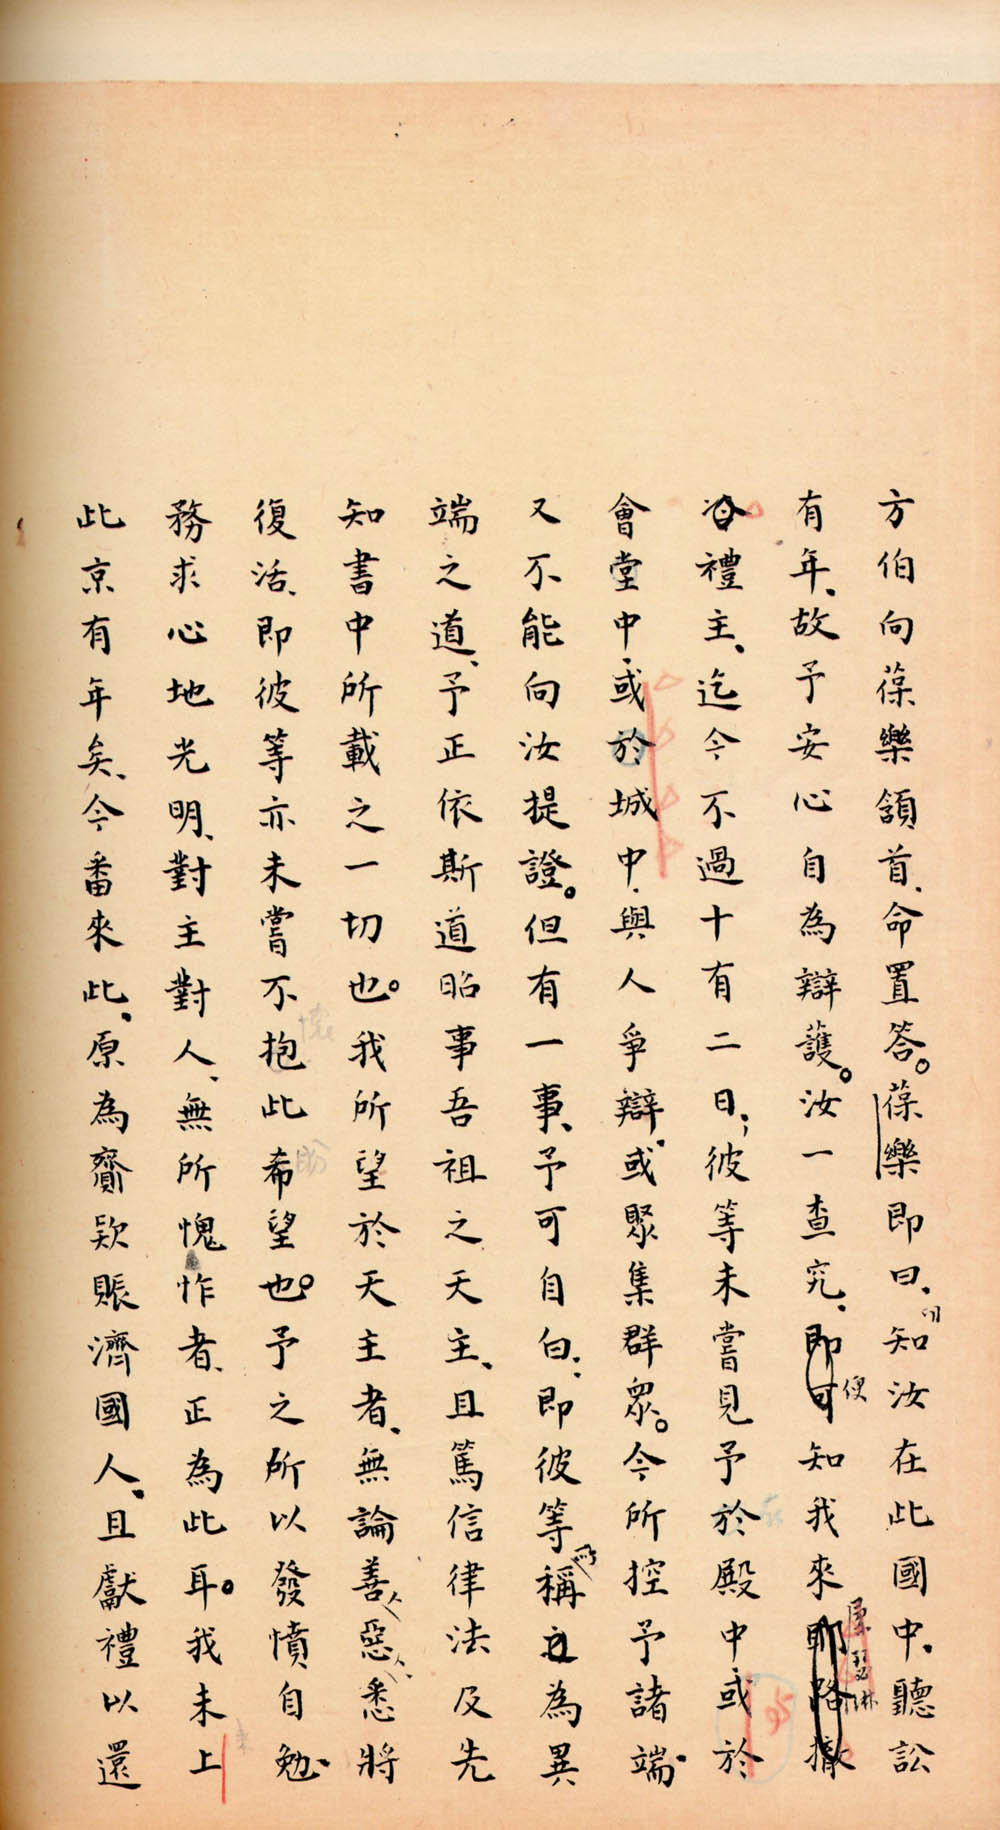 方伯向葆樂頷首、命置答。葆樂即曰、知汝在此國中、聽訟
有年、故予安心自為辯護。汝一查究、便知我來
禮主、迄今不過十有二日；彼等未嘗見予於殿中、或於
會堂中、或於城中、與人爭辯、或聚集群眾。今所控予諸端、
又不能向汝提證。但有一事、予可自白：即彼等所稱為異
端之道、予正依斯道昭事吾祖之天主、且篤信律法及先
知書中所載之一切也。我所望於天主者、無論善人惡人、悉將
復活、即彼等亦未嘗不抱此希望也。予之所以發憤自勉、
務求心地光明、對主對人、無所愧怍者、正為此耳。我未上
此京有年矣、今番來此、原為齎款賑濟國人、且獻禮以還